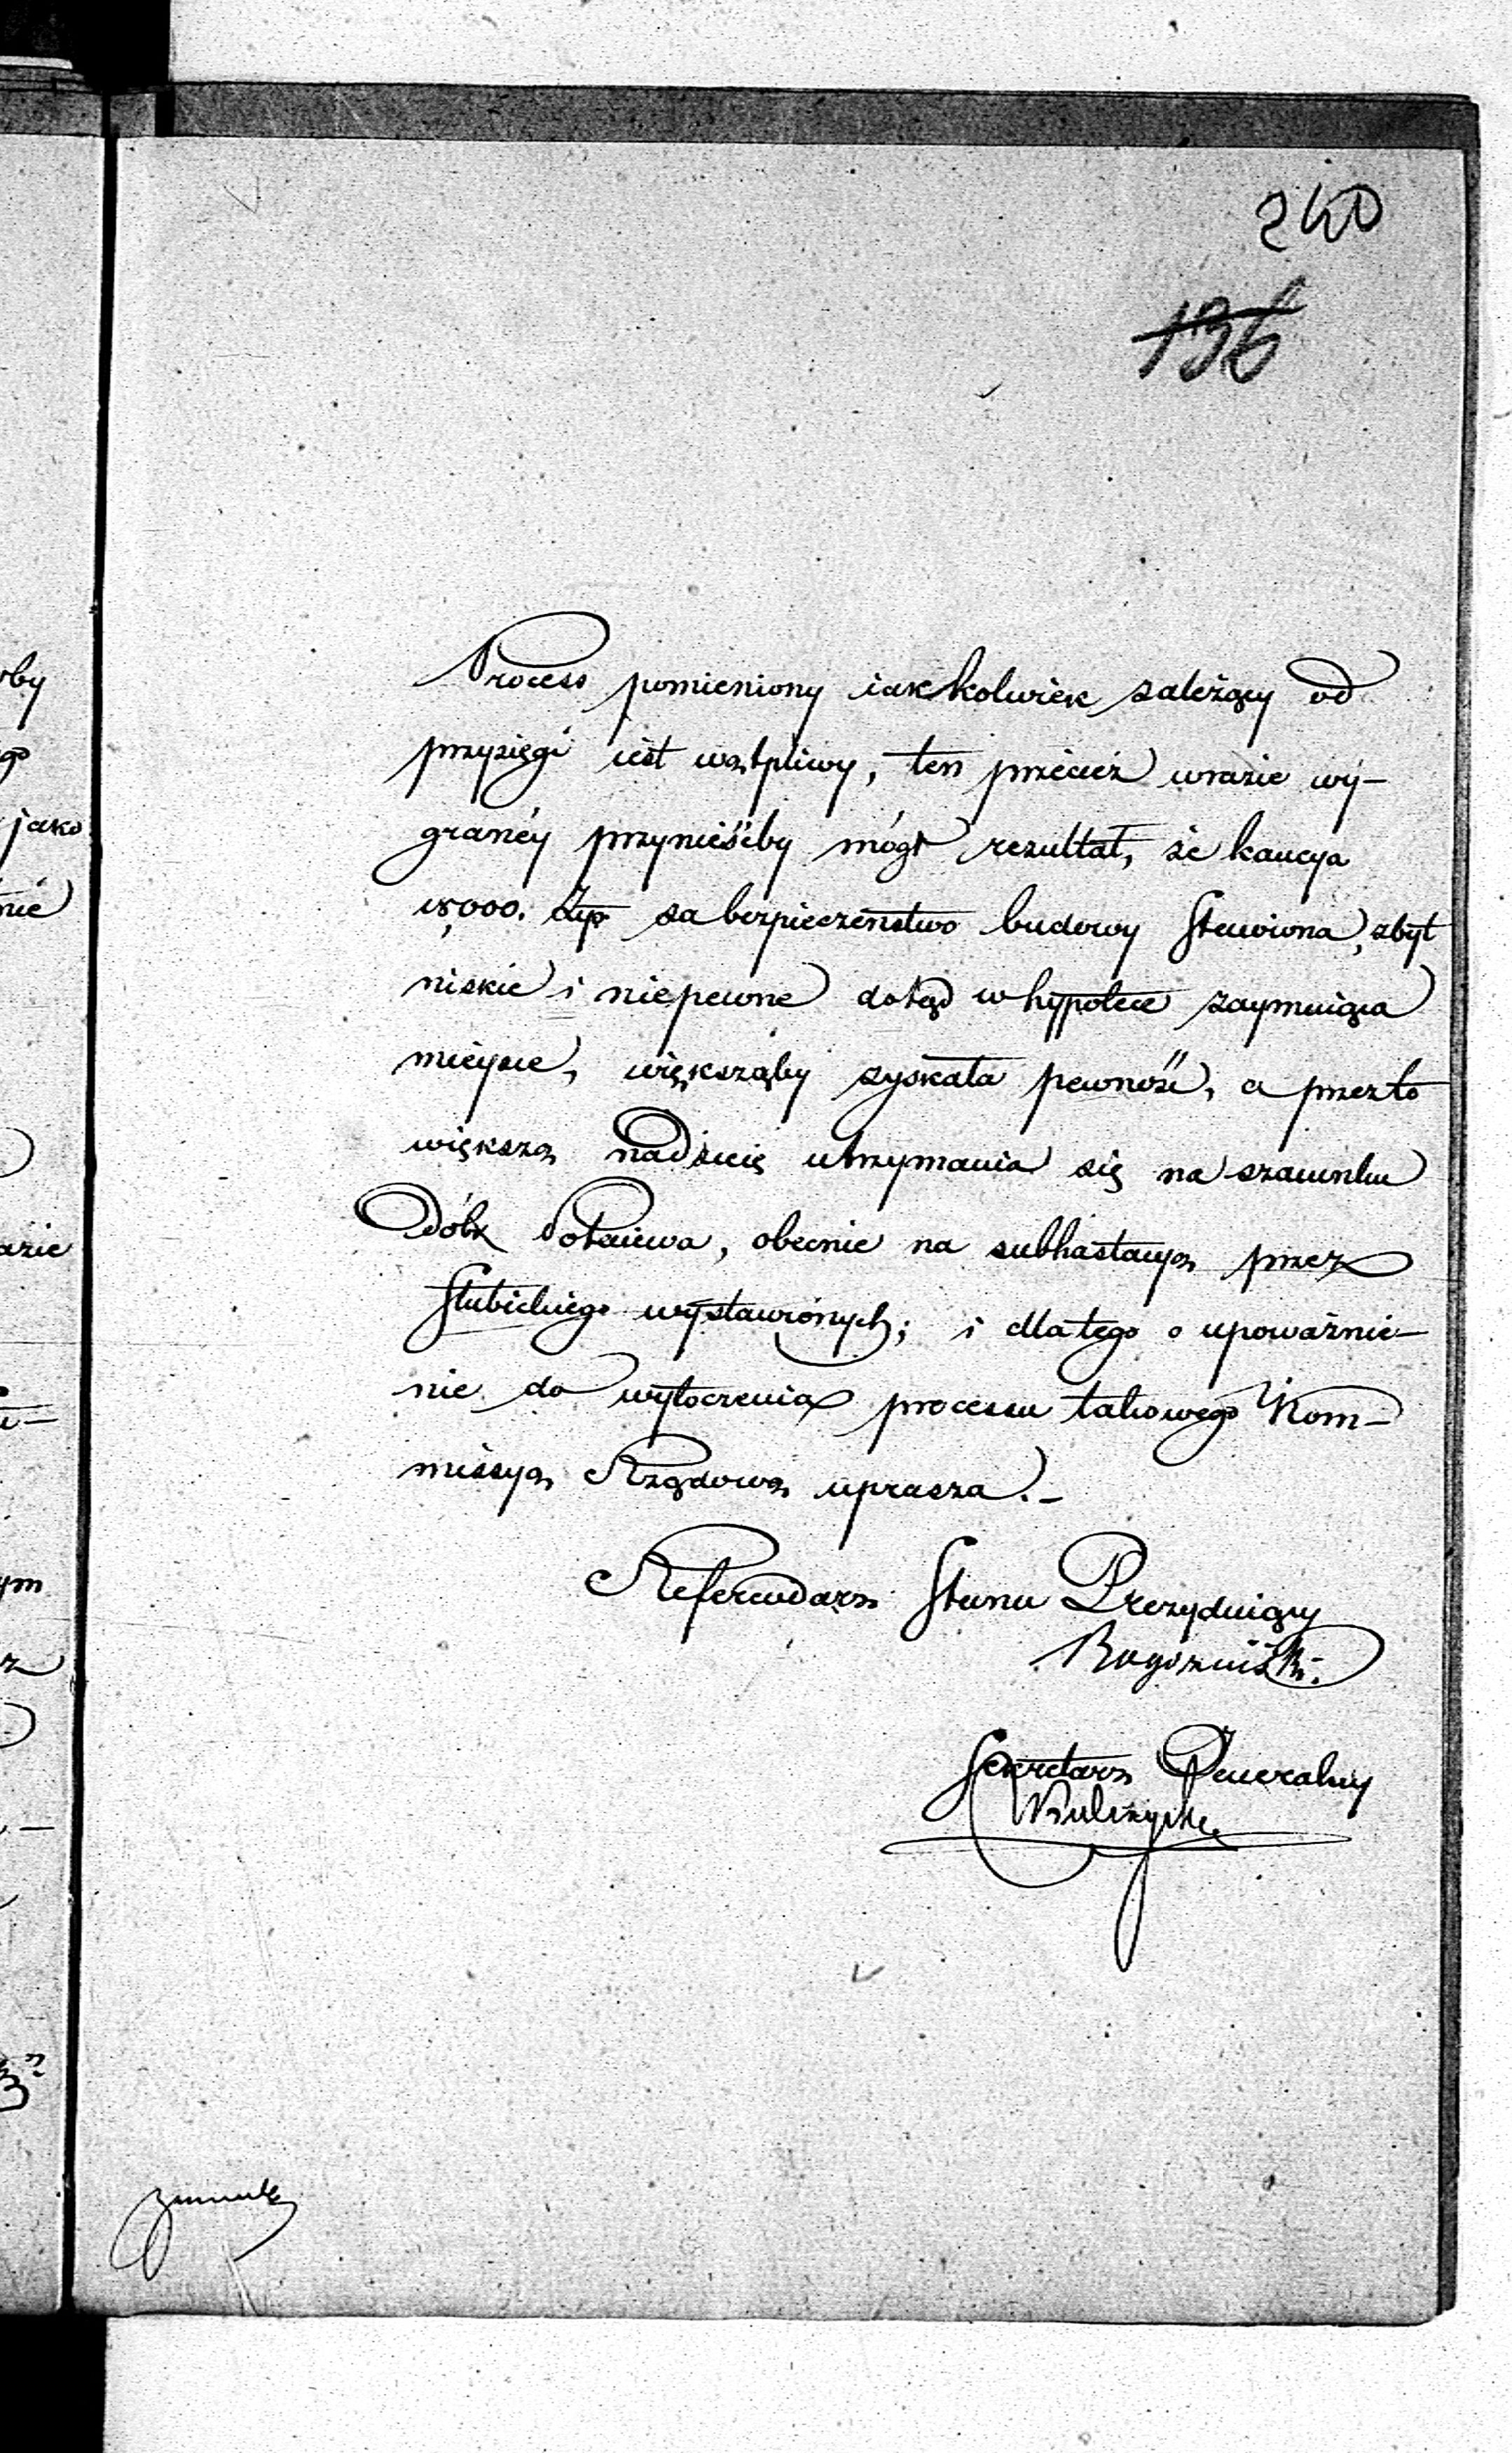 240
136
Process pomieniony iakkolwiek zależący od
przysięgi iest wątpliwy, ten przecież wrazie wy-
granéy przynieśćby mógł rezultat, że kaucya
18,000. Złp. za bezpieczeństwo budowy stawiona, zbyt
niskie i niepewne dotąd w hypotece zaymuiąca
mieysce, większąby zyskała pewność, a przezto
większą nadzieię utrzymania się na szacunku
Dóbr Potaiewa, obecnie na subhastacyą przez
Słubickiego wystawionych; i dla tego o upoważnie-
nie do wytoczenia processu takowego Kom-
missyą Rządową uprasza.-
Referendarz Stanu Prezyduiący
Sekretarz Generalny
oby
go
jako
nié
azie
ym